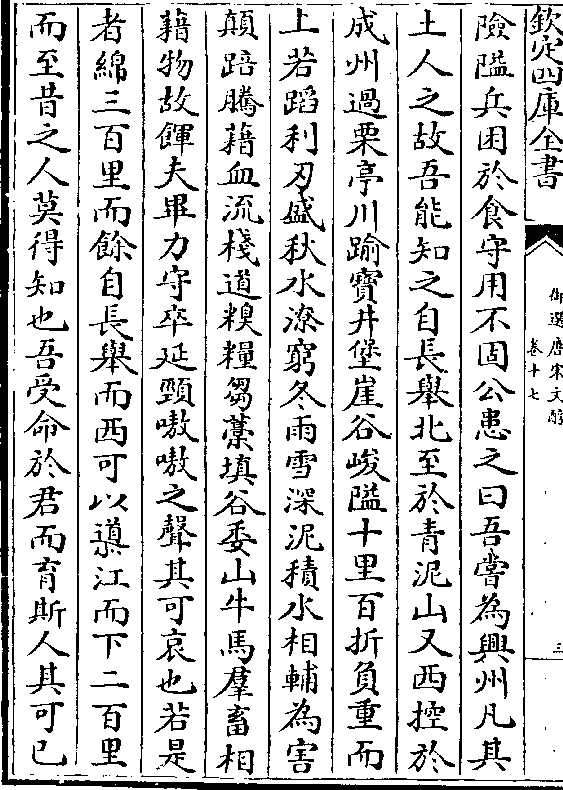 欽定四庫全書
御選唐宋文醇
卷十七
三
險隘兵困於食守用不固公患之曰吾嘗為興州凡其
土人之故吾能知之自長舉北至於青泥山又西控於
成州過栗亭川踰寶井堡崖谷峻隘十里百折負重而
上若蹈利刃盛秋水潦窮冬雨雪深泥積水相輔為害
顛踣騰藉血流棧道糗糧芻藁填谷委山牛馬羣畜相
藉物故餫夫畢力守卒延頸嗷嗷之聲其可哀也若是
者綿三百里而餘自長舉而西可以導江而下二百里
而至昔之人莫得知也吾受命於君而育斯人其可已